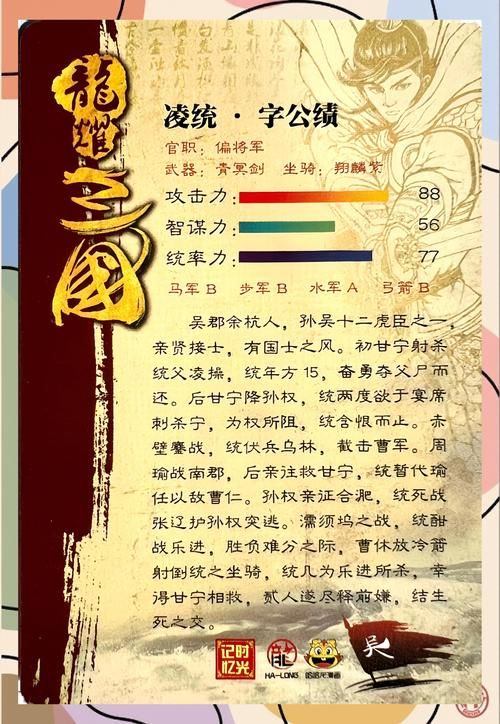 龍耀三國
凌统·字公绩
官职：偏将军
武器：青冥剑 坐骑：翔麟紫
攻击力： 88
智谋力： 56
统率力： 77
马军B 步军B 水军A 弓箭B
吴郡余杭人，孙吴十二虎臣之一，
亲贤接士，有国士之风。初甘宁射杀
统父凌操，统年方15，奋勇夺父尸而
还。后甘宁降孙权，统两度欲于宴席
刺杀宁，为权所阻，统含恨而止。赤
壁鏖战，统伏兵乌林，截击曹军。周
瑜战南郡，后亲注救甘宁，统暂代瑜
任以敌曹仁。孙权亲证合肥，统死战
张辽护孙权突逃。濡须坞之战，统酣
战乐进，胜负难分之际，曹休放冷箭
射倒统之坐骑，统几为乐进所杀，幸
得甘宁相救，贰人遂尽释前嫌，结生
死之交。
时光记忆
龍
HA-LONG
哈哈龙漫画
吴